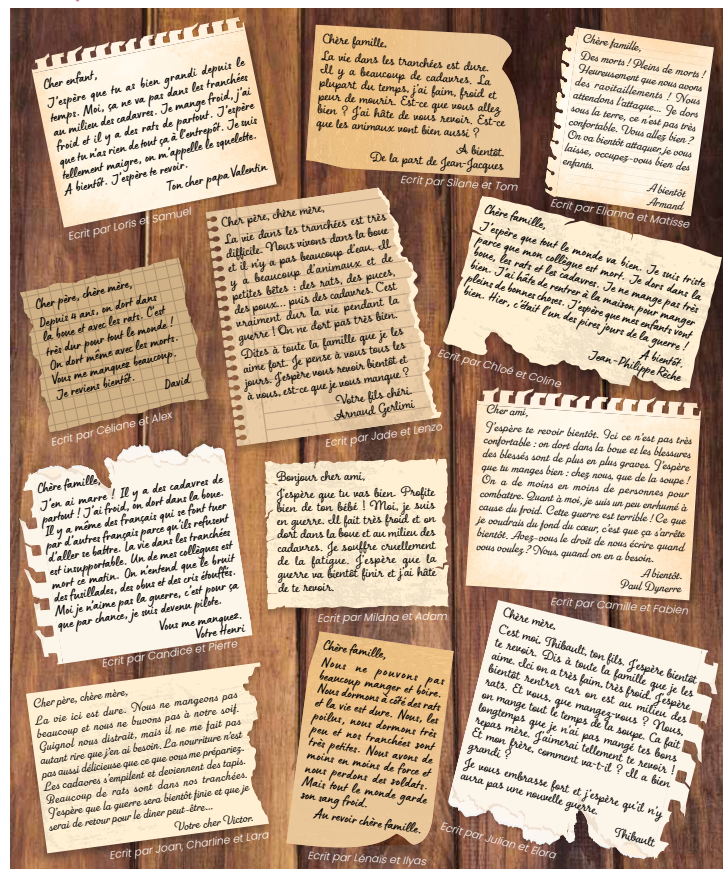 Cher enfant,
J'espère que tu as bien grandi depuis le
temps. Moi, ça ne va pas dans les tranchées
au milieu des cadavres. Je mange froid, j'ai
froid et il y a des rats de partout. J'espère
que tu n'as rien de tout ça à l'entrepôt. Je suis
tellement maigre, on m'appelle le squelette.
A bientôt. J'espère te revoir.
Ton cher papa Valentin
Ecrit par Loris et Samuel
Chère famille,
La vie dans les tranchées est dure.
Il y a beaucoup de cadavres. La
plupart du temps, j'ai faim, froid et
peur de mourir. Est-ce que vous allez
bien ? J'ai hâte de vous revoir. Est-ce
que les animaux vont bien aussi ?
A bientôt.
De la part de Jean-Jacques
Ecrit par Silane et Tom
Chère famille,
Des morts ! Pleins de morts !
Heureusement que nous avons
des ravitaillements ! Nous
attendons l'attaque... Je dors
sous la terre, ce n'est pas très
confortable. Vous allez bien ?
On va bientôt attaquer, je vous
laisse, occupez-vous bien des
enfants.
A bientôt
Armand
Ecrit par Elianna et Matisse
Cher père, chère mère,
Depuis 4 ans, on dort dans
la boue et avec les rats. C'est
très dur pour tout le monde !
On dort même avec les morts.
Vous me manquez beaucoup.
Je reviens bientôt.
David
Ecrit par Céliane et Alex
Cher père, chère mère,
La vie dans les tranchées est très
difficile. Nous vivons dans la boue
et il n'y a pas beaucoup d'eau. Il
y a beaucoup d'animaux et de
petites bêtes : des rats, des puces,
des poux... puis des cadavres. C'est
vraiment dur la vie pendant la
guerre ! On ne dort pas très bien.
Dites à toute la famille que je les
aime fort. Je pense à vous tous les
jours. J'espère vous revoir bientôt et
à vous, est-ce que je vous manque ?
Votre fils chéri.
Arnaud Gerlimi
Ecrit par Jade et Lenzo
Chère famille,
J'espère que tout le monde va bien. Je suis triste
parce que mon collègue est mort. Je dors dans la
boue, les rats et les cadavres. Je ne mange pas très
bien. J'ai hâte de rentrer à la maison pour manger
pleins de bonnes choses. J'espère que mes enfants vont
bien. Hier, c'était l'un des pires jours de la guerre !
A bientôt.
Jean-Philippe Rèche
Ecrit par Chloé et Coline
Chère famille,
J'en ai marre ! Il y a des cadavres de
partout ! J'ai froid, on dort dans la boue.
Il y a même des français qui se font tuer
par d'autres français parce qu'ils refusent
d'aller se battre. La vie dans les tranchées
est insupportable. Un de mes collègues est
mort ce matin. On n'entend que le bruit
des fusillades, des obus et des cris étouffés.
Moi je n'aime pas la guerre, c'est pour ça
que par chance, je suis devenu pilote.
Vous me manquez.
Votre Henri
Ecrit par Candice et Pierre
Bonjour cher ami,
J'espère que tu vas bien. Profite
bien de ton bébé ! Moi, je suis
en guerre. Il fait très froid et on
dort dans la boue et au milieu des
cadavres. Je souffre cruellement
de la fatigue. J'espère que la
guerre va bientôt finir et j'ai hâte
de te revoir.
Ecrit par Milana et Adam
Cher ami,
J'espère te revoir bientôt. Ici ce n'est pas très
confortable : on dort dans la boue et les blessures
des blessés sont de plus en plus graves. J'espère
que tu manges bien : chez nous, que de la soupe !
On a de moins en moins de personnes pour
combattre. Quant à moi, je suis un peu enrhumé à
cause du froid. Cette guerre est terrible ! Ce que
je voudrais du fond du cœur, c'est que ça s'arrête
bientôt. Avez-vous le droit de nous écrire quand
vous voulez ? Nous, quand on en a besoin.
A bientôt.
Paul Dynerre
Ecrit par Camille et Fabien
Cher père, chère mère,
La vie ici est dure. Nous ne mangeons pas
beaucoup et nous ne buvons pas à notre soif.
Guignol nous distrait, mais il ne me fait pas
autant rire que j'en ai besoin. La nourriture n'est
pas aussi délicieuse que ce que vous me prépariez.
Les cadavres s'empilent et deviennent des tapis.
Beaucoup de rats sont dans nos tranchées.
J'espère que la guerre sera bientôt finie et que je
serai de retour pour le diner peut-être...
Votre cher Victor.
Ecrit par Joan, Charline et Lara
Chère famille,
Nous ne pouvons pas
beaucoup manger et boire.
Nous dormons à côté des rats
et la vie est dure. Nous, les
poilus, nous dormons très
peu et nos tranchées sont
très petites. Nous avons de
moins en moins de force et
nous perdons des soldats.
Mais tout le monde garde
son sang froid.
Au revoir chère famille.
Ecrit par Lénaïs et Ilyas
Chère mère.
C'est moi, Thibault, ton fils. J'espère bientôt
te revoir. Dis à toute la famille que je les
aime. Ici on a très faim, très froid. J'espère
bientôt rentrer car on est au milieu des
rats. Et vous, que mangez-vous ? Nous,
on mange tout le temps de la soupe. Ca fait
longtemps que je n'ai pas mangé tes bons
repas mère. J'aimerai tellement te revoir !
Et mon frère, comment va-t-il ? Il a bien
grandi ?
Je vous embrasse fort et j'espère qu'il n'y
aura pas une nouvelle guerre.
Thibault
Ecrit par Julian et Elora